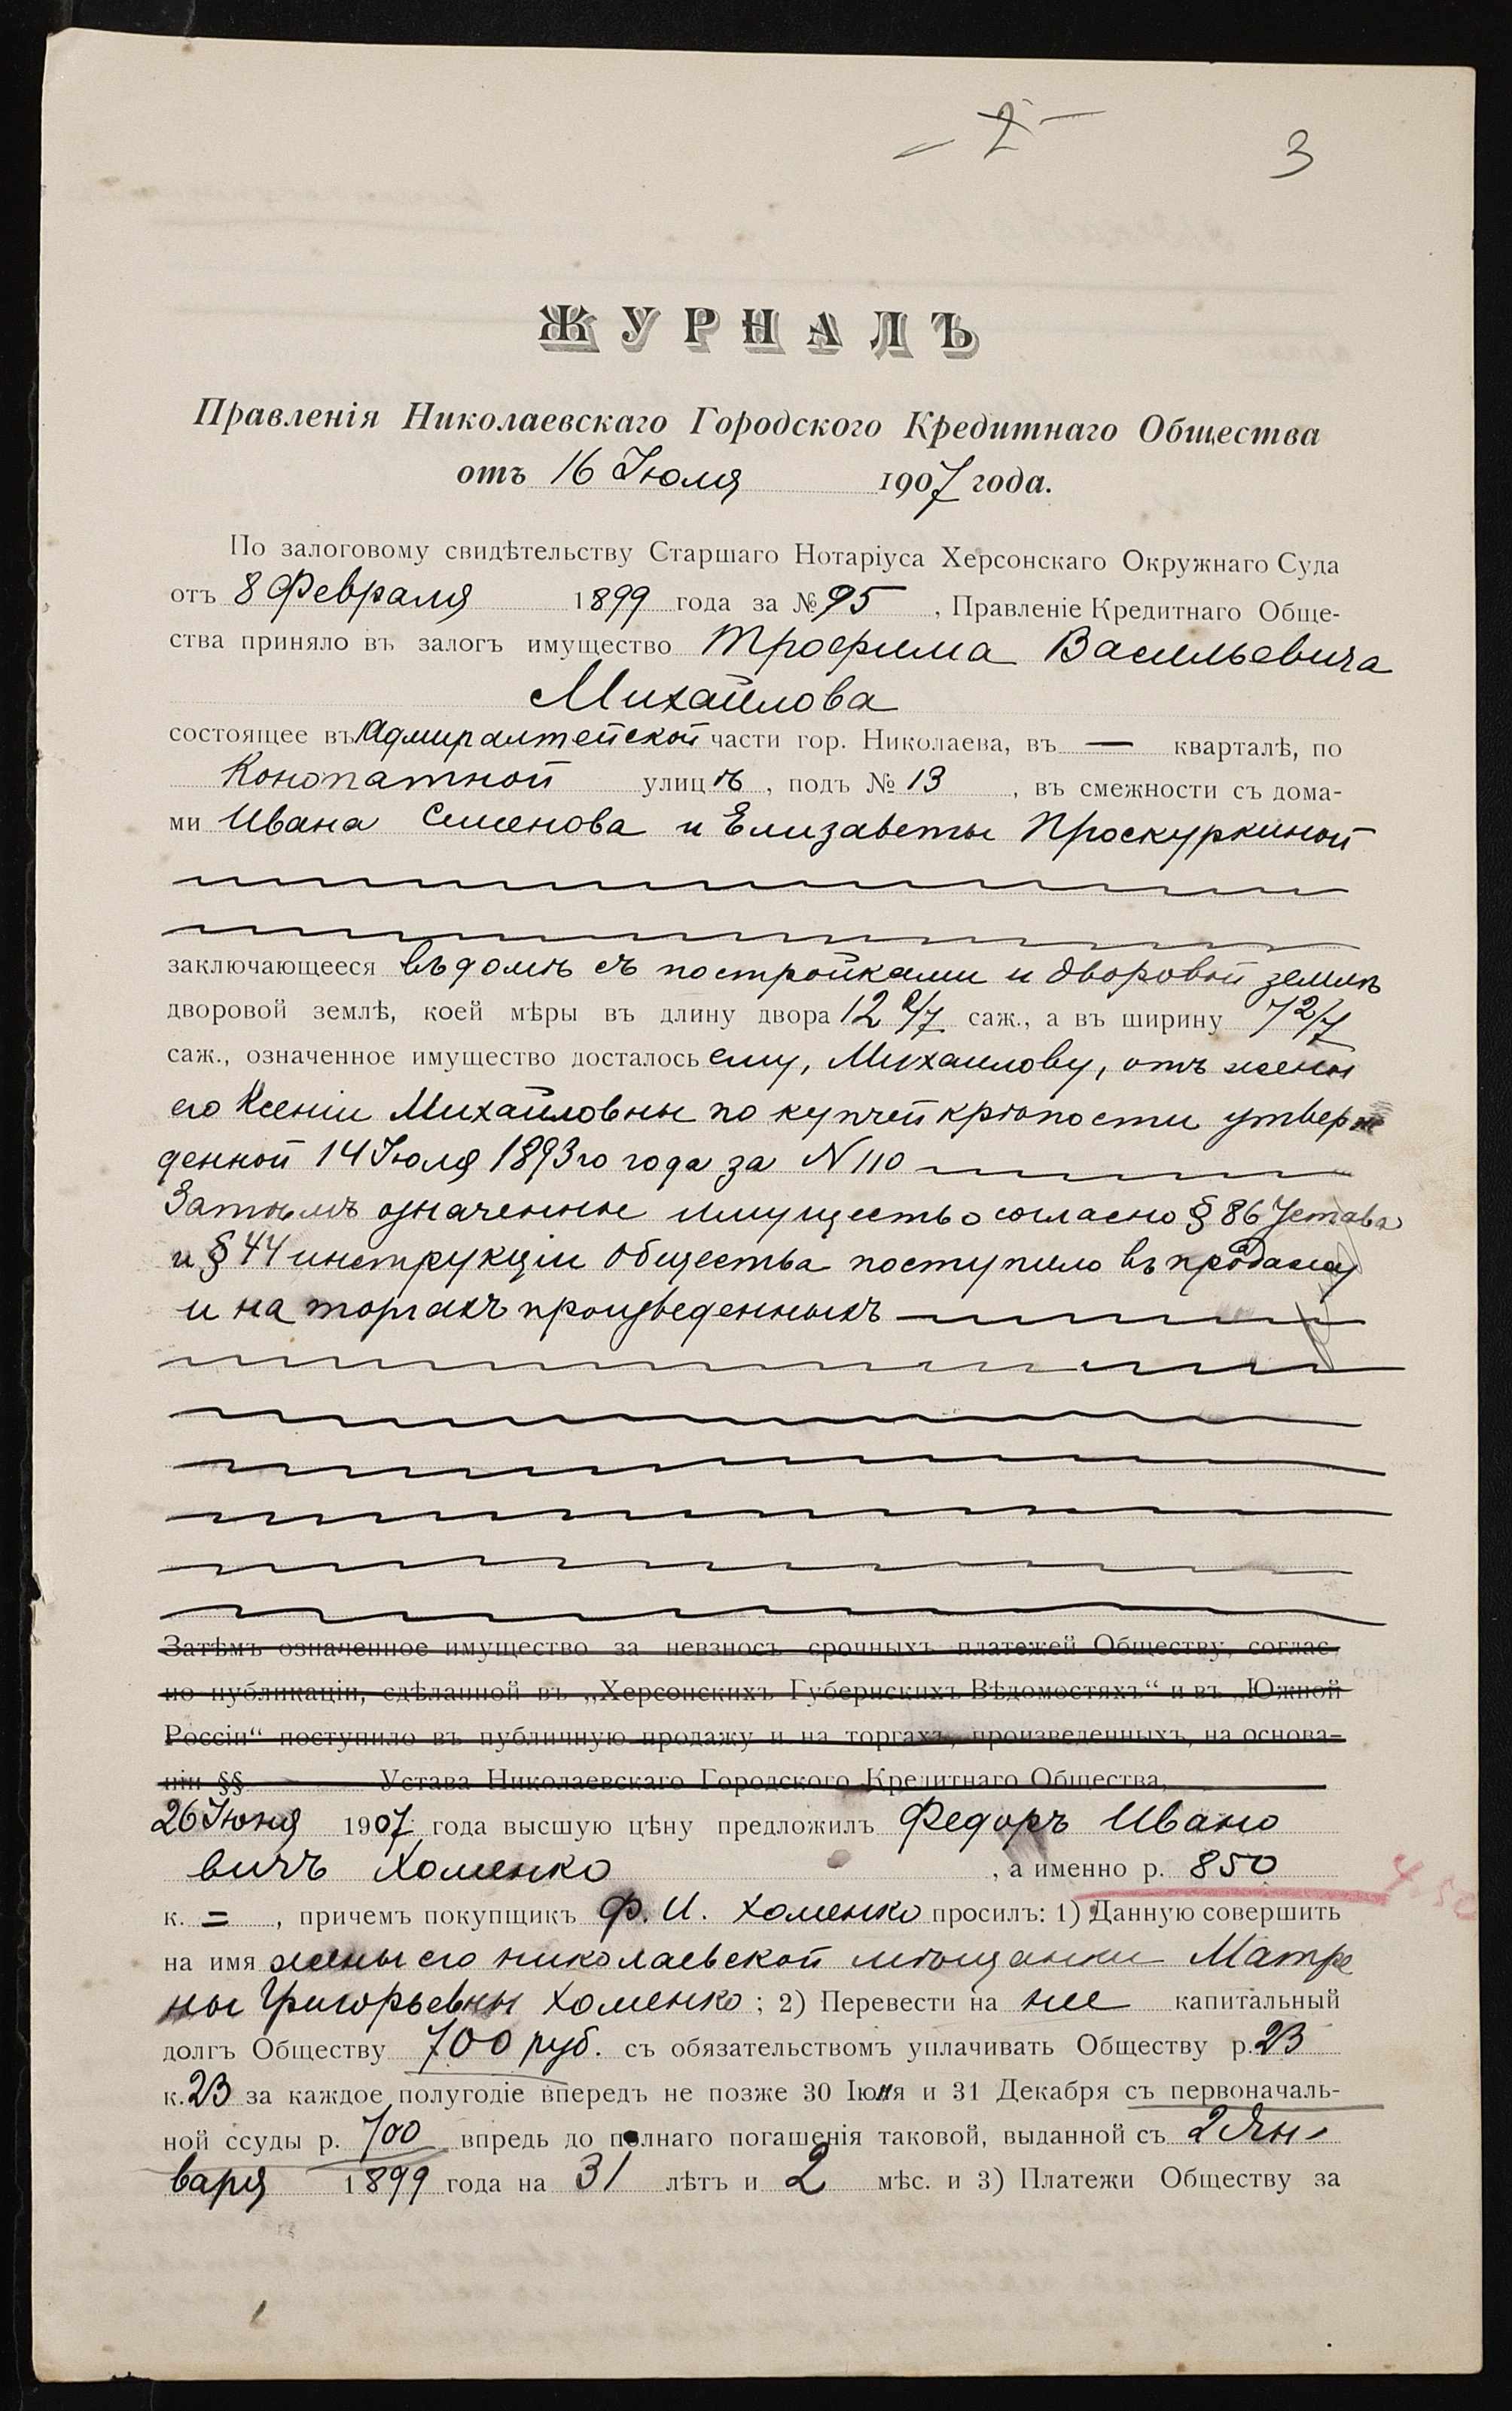 2
3
ЖУРНАЛЪ
Правленія Николаевскаго Городского Кредитнаго Общества
отъ 16 Іюля 1907 года.
По залоговому свидѣтельству Старшаго Нотаріуса Херсонскаго Окружнаго Суда
отъ 8 Февраля 1899 года за № 95, Правленіе Кредитнаго Обще-
ства приняло въ залогъ имущество Трофима Васильевича
Михайлова
состоящее въ Адмиралтейской части гор. Николаева, въ — кварталѣ, по
Конопатной улицѣ, подъ № 13, въ смежности съ дома-
ми Ивана Семенова и Елизаветы Проскуркиной
заключающееся въ домѣ съ постройками и дворовой землѣ
дворовой землѣ, коей мѣры въ длину двора 12 /7 саж., а въ ширину 7 2/7
саж., означенное имущество досталось ему, Михайлову, отъ жены
его Ксеніи Михайловны по купчей крѣпости утверж
денной 14 Іюля 1893го года за N 110
Затѣмъ означенное имущество согласно § 86 Устава
и § 44 инструкціи Общества поступило въ продажу
и на торгахъ произведенныхъ
Затѣмъ означенное имущество за невзносъ срочныхъ платежей Обществу, соглас-
но публикаціи, сдѣланной въ „Херсонскихъ Губернскихъ Вѣдомостяхъ“ и въ „Южной
Россіи“ поступило въ публичную продажу и на торгахъ, произведенныхъ, на основа-
ніи §§ Устава Николаевскаго Городского Кредитнаго Общества,
26 Іюня 1907 года высшую цѣну предложилъ Федоръ Ивано
вичъ Хоменко, а именно р. 850
к. =, причемъ покупщикъ Ф. И. Хоменко просилъ: 1) Данную совершить
на имя жены его николаевской мѣщанки Матре
ны Григорьевны Хоменко; 2) Перевести на нее капитальный
долгъ Обществу 700 руб. съ обязательствомъ уплачивать Обществу р. 23
к. 23 за каждое полугодіе впередъ не позже 30 Іюня и 31 Декабря съ первоначаль-
ной ссуды р. 700 впредь до полнаго погашенія таковой, выданной съ 2 Ян-
варя 1899 года на 31 лѣтъ и 2 мѣс. и 3) Платежи Обществу за